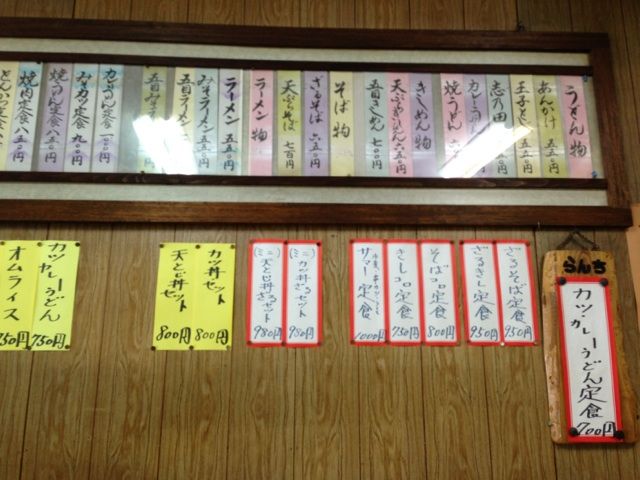 うどん物
あんかけ 五五〇円
玉子とじ
志乃田
カレーうどん
焼うどん 六〇〇円
きしめん物
天ぷらきしめん 六五〇円
五目きしめん 七〇〇円
そば物
ざるそば 六五〇円
天ぷらそば 七百円
ラーメン物
ラーメン 五五〇円
みそラーメン 五五〇円
五目ラーメン
五目みそ
カレーうどん定食
みそカツ定食 九〇〇円
焼うどん定食 八五〇円
焼肉定食 八五〇円
とんかつ定食
らんち
カツ・カレーうどん定食
700円
ざるそば定食 950円
ざるきし定食 950円
そばコロ定食 800円
きしコロ定食 750円
サマー定食 1000円
(ミニ)カツ丼ざるセット 980円
(ミニ)天とじ丼ざるセット 980円
カツ丼セット 800円
天とじ丼セット 800円
カツカレーうどん 750円
オムライス 750円